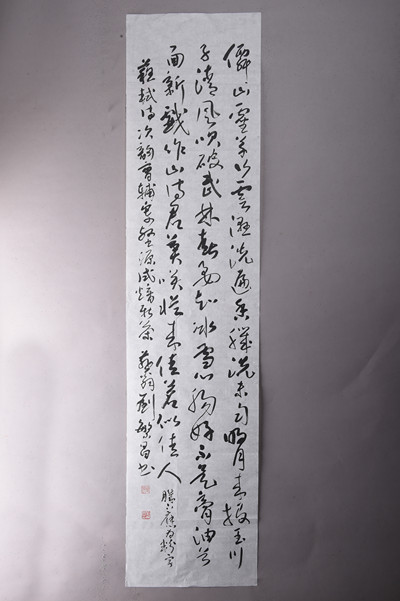 僊山靈草行雲濕洗遍香肌未勻明月来投玉川
子清風吹破武林春要知冰雪心腸好不是膏油首
面新戲作小詩君莫笑從来佳茗似佳人
蘇軾詩次韻曹輔寄壑源試焙新茶 劉繁昌书